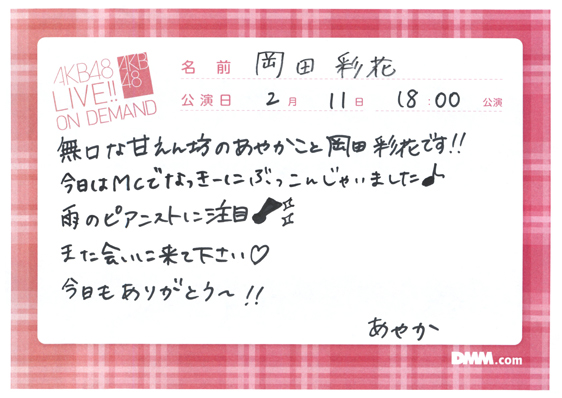 AKB48
LIVE!!
ON DEMAND
AKB
48
名前 岡田彩花
公演日 2月 11日 18:00 公演
無口な甘えん坊のあやかこと岡田彩花です!!
今日はMCでなっきーにぶっこんじゃいました♪
雨のピアニストに注目！
また会いに来て下さい♡
今日もありがとう〜!!
あやか
DMM.com